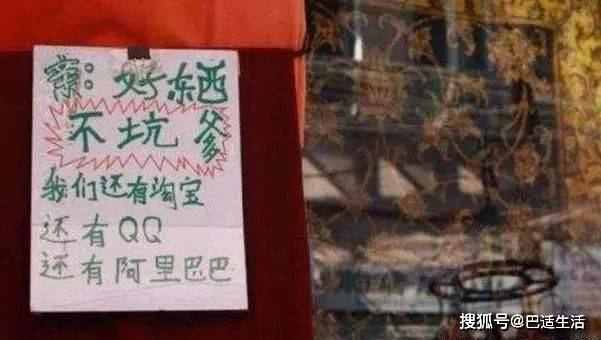 好东西
不坑爹
我们还有淘宝
还有QQ
还有阿里巴巴
搜狐号@巴适生活